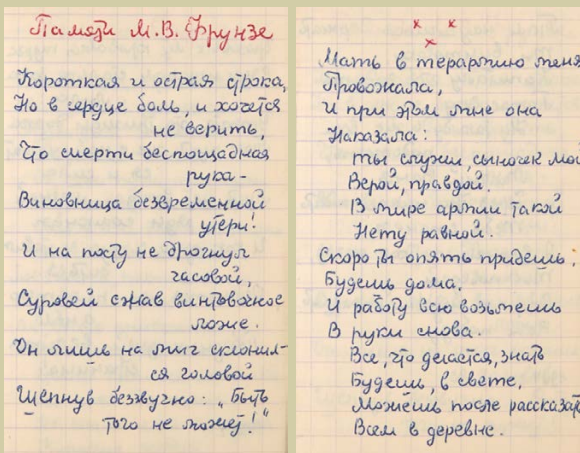 Памяти М.В. Фрунзе
Короткая и острая строка,
Но в сердце боль, и хочется
не верить,
Что смерти беспощадная
рука -
Виновница безвременной
утери!
И на посту не дрогнул
часовой,
Суровей сжав винтовочное
ложе.
Он лишь на миг склонил-
ся головой
Шепнув беззвучно: „Быть
того не может!"
х х
х
Мать в терармию меня
Провожала,
И при этом мне она
Наказала:
ты служи, сыночек мой
Верой, правдой.
В мире армии такой
Нету равной.
Скоро ты опять придешь,
Будешь дома.
И работу всю возьмешь
В руки снова.
Все, что делается, знать
Будешь, в свете,
Можешь после рассказать
Всем в деревне.